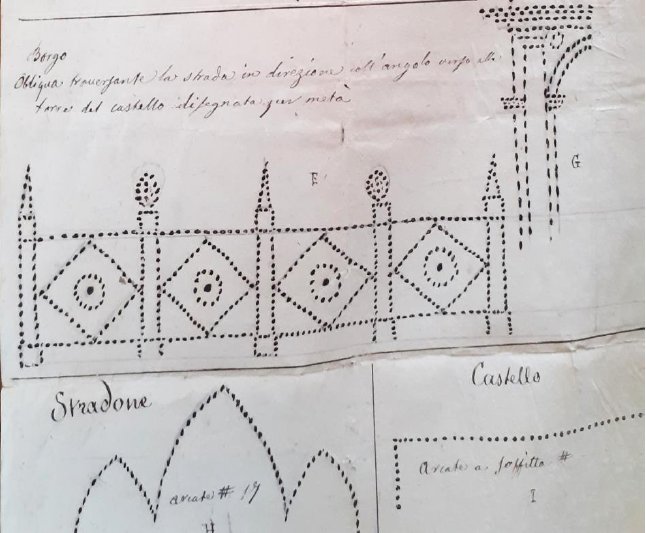 Borgo
Obliqua traversante la strada in direzione coll'angolo verso alla
torre del castello disegnata per metà
E
G
Stradone
Arcate # 17
H
Castello
Arcate a soffitto #
I